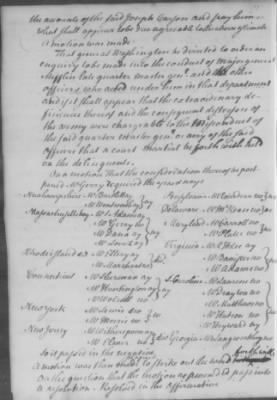 the accounts of the said Joseph Carson and pay him
what shall appear to be due agreeable to the above estimate
A motion was made
That general Washington be directed to order an
enquiry to be made into the conduct of Major general
Mifflin late quarter master genl and the other
officers who acted under him in that department
and if it shall appear that the extraordinary de-
ficiencies thereof and the consequent distresses of
the army were chargeable to the misconduct of
the said quarter Master genl or any of the said
officers that a court martial be forthwith held
on the delinquents.
On a motion that the consideration thereof be post
poned Mr Gerry required the yeas & nays
Newhampshire Mr Bartlett ay
Mr Wentworth ay
Massachusetts bay Mr S Adams ay
Mr Gerry no
Mr Dana ay
Mr Lovell ay
Rhode island &c Mr Ellery ay
Mr Marchant no
Connecticut Mr Sherman ay
Mr Huntington ay
Mr Wolcott no
New York Mr Lewis no
Mr Morris no
New Jersey Mr Witherspoon ay
Mr Elmer no
Pensylvania
Delaware Mr McKean no
Maryland Mr Carroll no
Mr Plater no
Virginia
Mr Banister no
Mr Adams no
S Carolina Mr Laurens no
Mr Drayton no
Mr Matthews no
Mr Hutson no
Mr Heyward ay
Georgia Mr Langworthy no
So it passed in the negative
A motion was then made to strike out the word forthwith
On the question that the motion as amended be passed into
a resolution. Resolved in the affirmative